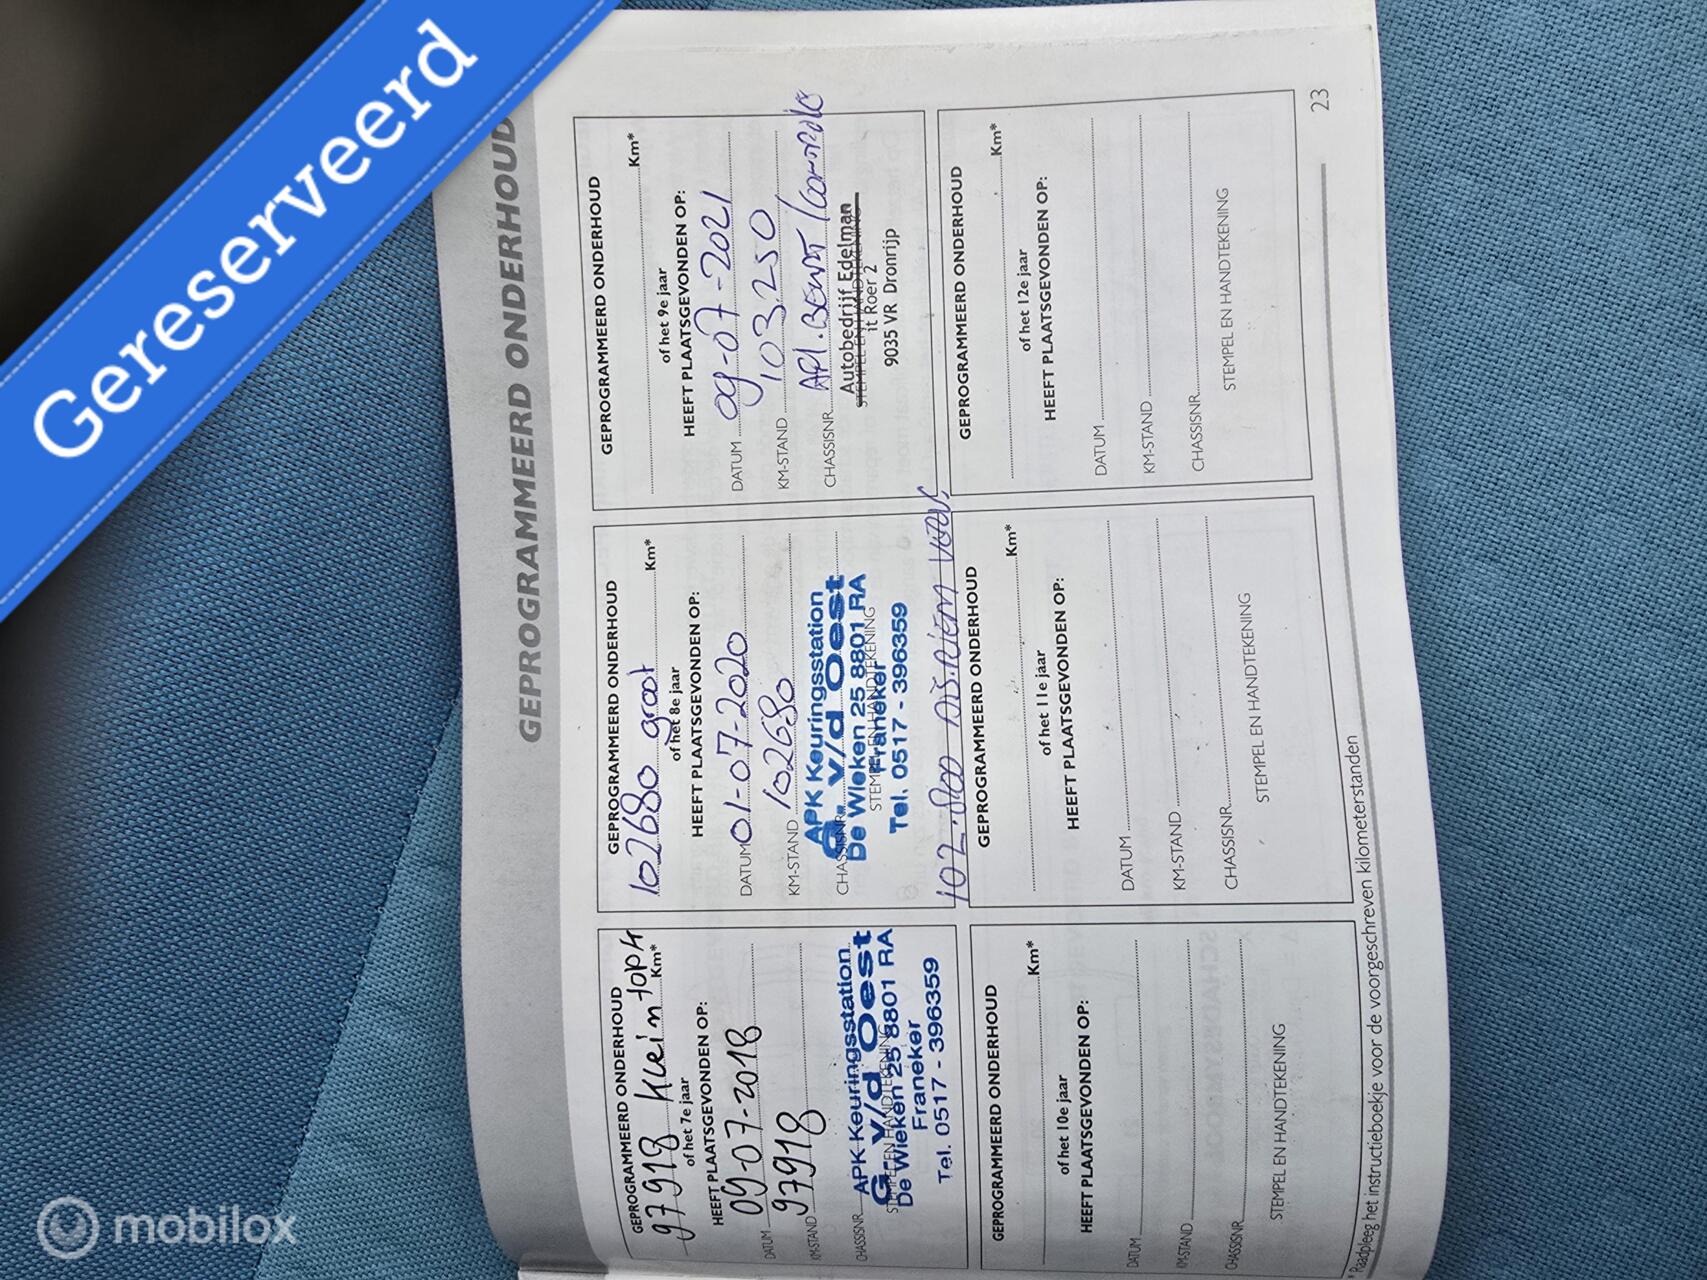 Gereserveerd
GEPROGRAMMEERD ONDERHOUD
GEPROGRAMMEERD ONDERHOUD
97918 klein top4
Km*
of het 7e jaar
HEEFT PLAATSGEVONDEN OP:
DATUM 09-07-2018
KM-STAND 97918
CHASSISNR.
APK Keuringsstation
G. v/d Oest
STEMPEL EN HANDTEKENING
De Wieken 25 8801 RA
Franeker
Tel. 0517 - 396359
GEPROGRAMMEERD ONDERHOUD
102680 groot Km*
of het 8e jaar
HEEFT PLAATSGEVONDEN OP:
DATUM 01-07-2020
KM-STAND 102680
APK Keuringsstation
CHASSISNR.
G. v/d Oest
De Wieken 25 8801 RA
STEMPEL EN HANDTEKENING
Franeker
Tel. 0517 - 396359
GEPROGRAMMEERD ONDERHOUD
Km*
of het 9e jaar
HEEFT PLAATSGEVONDEN OP:
DATUM 09-07-2021
KM-STAND 103250
CHASSISNR.
Autobedrijf Edelman
STEMPEL EN HANDTEKENING
it Roer 2
9035 VR Dronrijp
GEPROGRAMMEERD ONDERHOUD
Km*
of het 10e jaar
HEEFT PLAATSGEVONDEN OP:
DATUM
KM-STAND
CHASSISNR.
STEMPEL EN HANDTEKENING
GEPROGRAMMEERD ONDERHOUD
Km*
of het 11e jaar
HEEFT PLAATSGEVONDEN OP:
DATUM
KM-STAND
CHASSISNR.
STEMPEL EN HANDTEKENING
GEPROGRAMMEERD ONDERHOUD
Km*
of het 12e jaar
HEEFT PLAATSGEVONDEN OP:
DATUM
KM-STAND
CHASSISNR.
STEMPEL EN HANDTEKENING
* Raadpleeg het instructieboekje voor de voorgeschreven kilometerstanden
23
mobilox